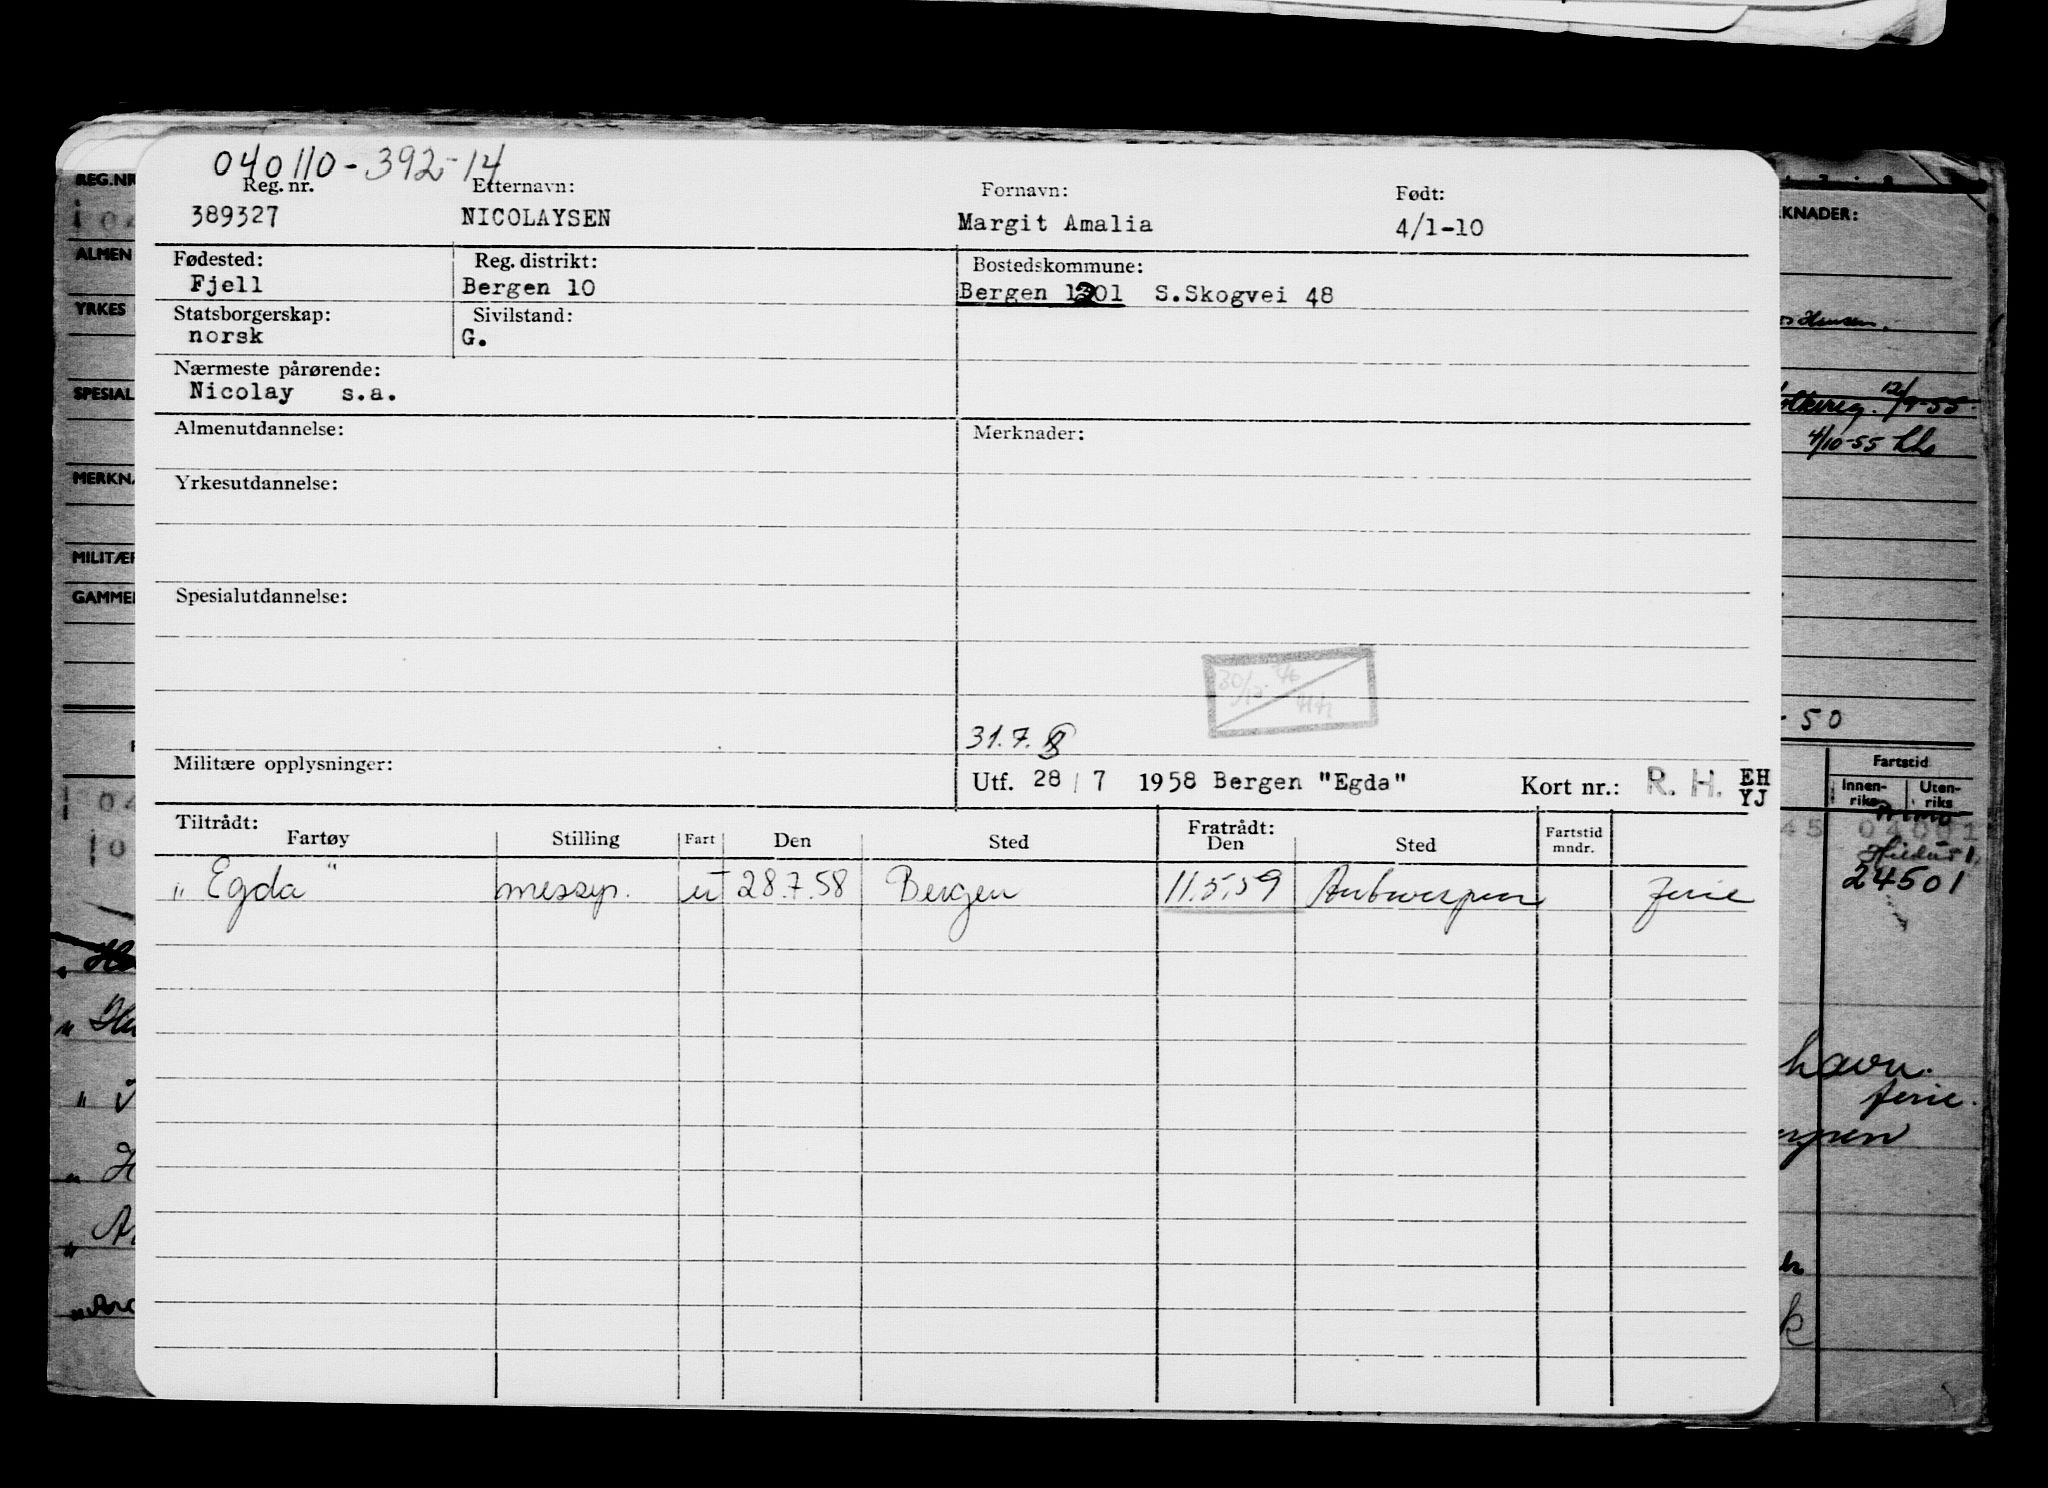 040110-392-14
Reg. nr. Etternavn: Fornavn: Født:
389327 NICOLAYSEN Margit Amalia 4/1-10
Fødested: Reg. distrikt: Bostedskommune:
Fjell Bergen 10 Bergen 1201 S.Skogvei 48
Statsborgerskap: Sivilstand:
norsk G.
Nærmeste pårørende:
Nicolay s.a.
Almenutdannelse: Merknader:
Yrkesutdannelse:
Spesialutdannelse:
31.7.
Militære opplysninger: Utf. 28 / 7 1958 Bergen "Egda" Kort nr.: R. H. EH
YJ
Tiltrådt: Fratrådt:
Fartøy Stilling Fart Den Sted Den Sted Fartstid
mndr.
"Egda" messp. u 28.7.58 Bergen 11.5.59 Antwerpen ferie
REG.NR
ALMEN
YRKES
SPESIAL
MERKNA
MILITÆR
GAMMEL
KNADER:
Hansen.
12/9-55
4/10-55
- 50
Fartstid
Innen-
riks
Uten-
riks
45
24501
havn.
ferie.